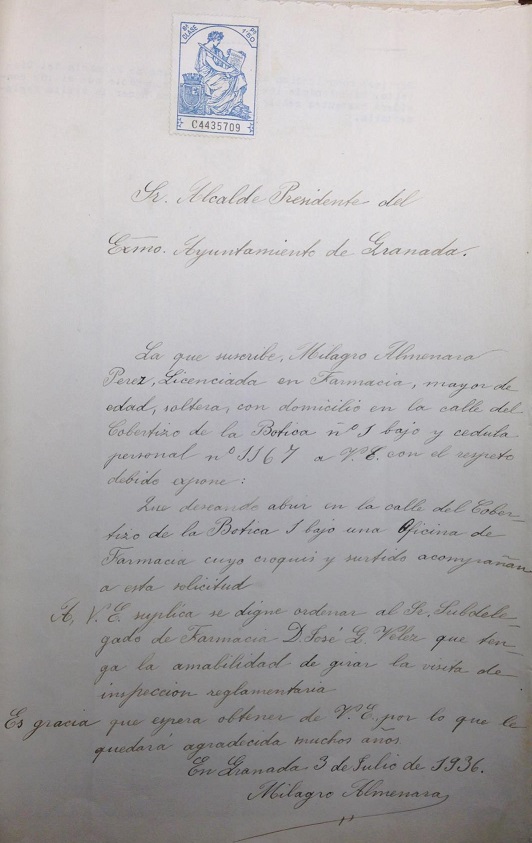 8ª CLASE
Pts 1'50
C4435709
Sr. Alcalde Presidente del
Exmo. Ayuntamiento de Granada.
La que suscribe, Milagro Almenara
Perez, Licenciada en Farmacia, mayor de
edad, soltera, con domicilio en la calle del
Cobertizo de la Botica nº 1 bajo y cedula
personal nº 1167 a V.E. con el respeto
debido expone:
Que deseando abrir en la calle del Cober-
tizo de la Botica 1 bajo una Oficina de
Farmacia cuyo croquis y surtido acompañan
a esta solicitud
A, V.E. suplica se digne ordenar al Sr. Subdele-
gado de Farmacia D. José G. Velez que ten-
ga la amabilidad de girar la visita de
inspeccion reglamentaria
Es gracia que espera obtener de V.E. por lo que le
quedará agradecida muchos años.
En Granada 3 de Julio de 1936.
Milagro Almenara